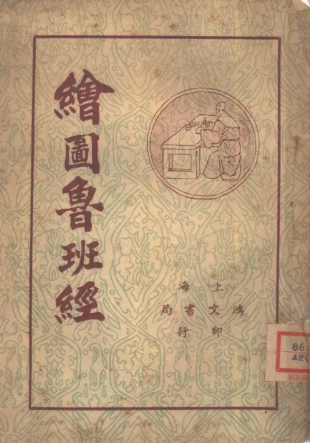 繪圖魯班經
上海
鴻文書局
印行
86
420